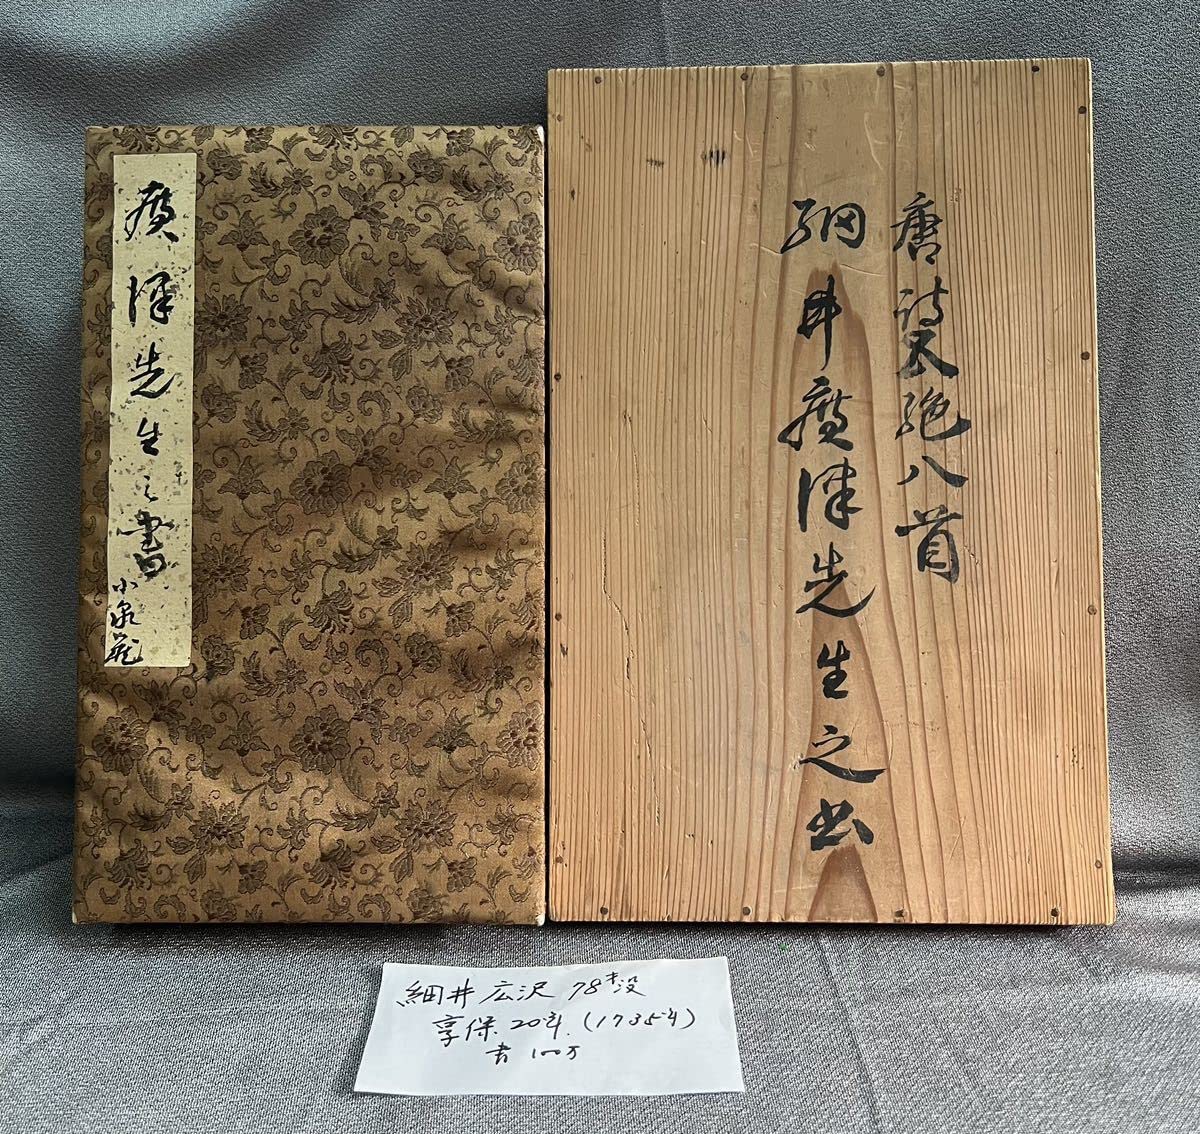 廣澤先生之書
小泉蔵
唐詩五絶八首
細井廣澤先生之書
細井広沢 78才没
享保20年.(1735年)
書 100万